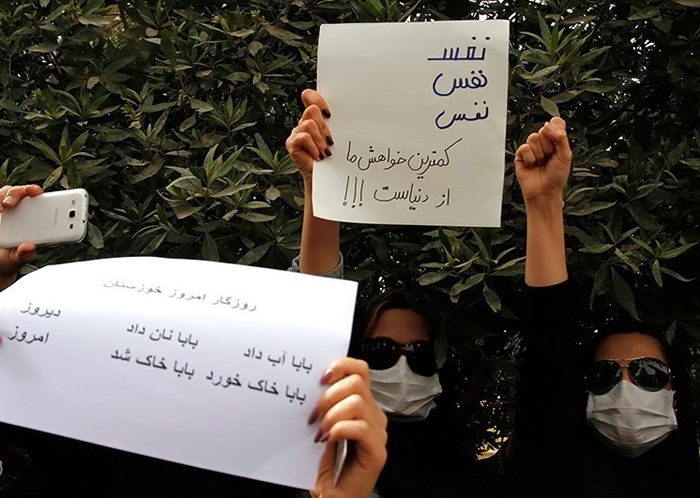 نفس
نفس
نفس
کمترین خواهش ما
از دنیاست !!!
روزگار امروز خوزستان
بابا آب داد بابا نان داد دیروز
بابا خاک خورد بابا خاک شد امروز